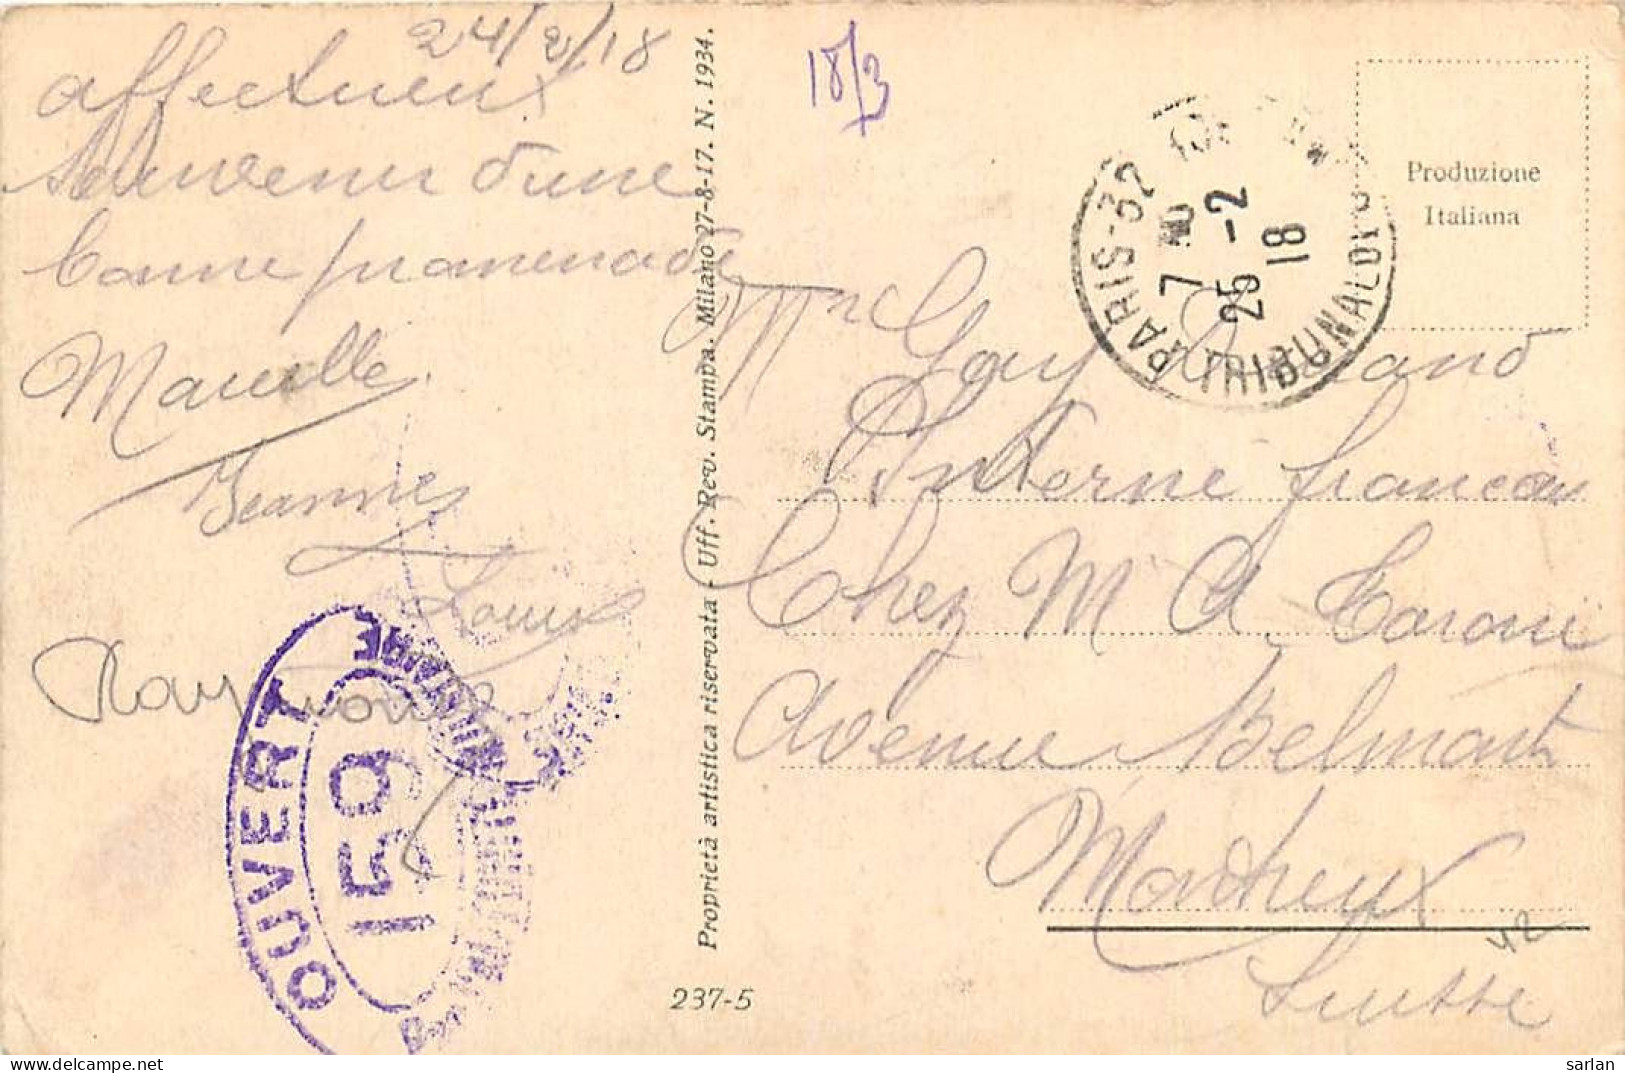 24/2/18
affectueux
Souvenir d'une
bonne promenade
Marcelle
Jeanne
Louis
Raymond
OUVERT
159
MILITAIRE
237-5
Proprietà artistica riservata - Uff. Rev. Stampa. Milano 27-8-17. N. 1934.
18/3
PARIS-32
TRIBUNAL
7
25 -2
18
Produzione
Italiana
Mr Gay Durand
Interné français
Chez M A Taroni
Avenue Belmont
Montreux
42
Suisse
sarlan